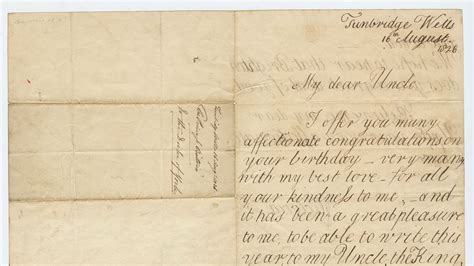 Tunbridge Wells
16th August
1826
My dear Uncle
I offer you many
affectionate congratulations on
your birthday – very many
with my best love – for all
your kindness to me, – and
it has been a great pleasure
to me, to be able to write this
year to my Uncle, the King,
to the Duke of York